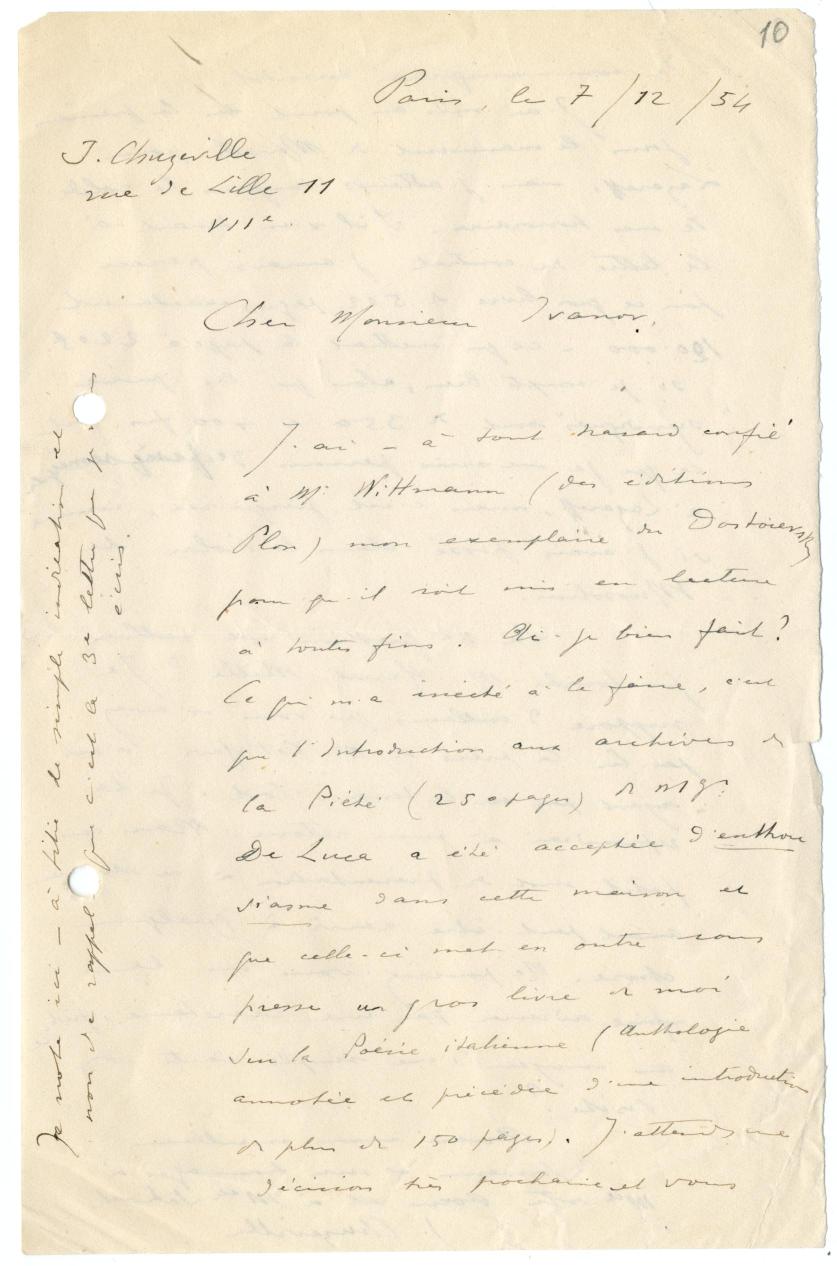 10
Paris, le 7/12/54
J. Chuzeville
rue de Lille 11
VIIe
Cher Monsieur Ivanov,
J'ai – à tout hasard confié
à Mr Wittmann (des éditions
Plon) mon exemplaire du Dostoievsky
pour qu'il soit mis en lecture
à toutes fins. Ai-je bien fait?
Ce qui m'a incité à le faire, c'est
que l'Introduction aux archives de
la Piété (250 pages) de Mgr
De Luca a été acceptée d'enthou
siasme dans cette maison et
que celle-ci met en outre sous
presse un gros livre de moi
sur la Poésie italienne (Anthologie
annotée et précédée d'une introduction
de plus de 150 pages). J'attends une
décision très prochaine et vous
Je note ici – à titre de simple indication et
non de rappel – que c'est la 3e lettre que je
écris.